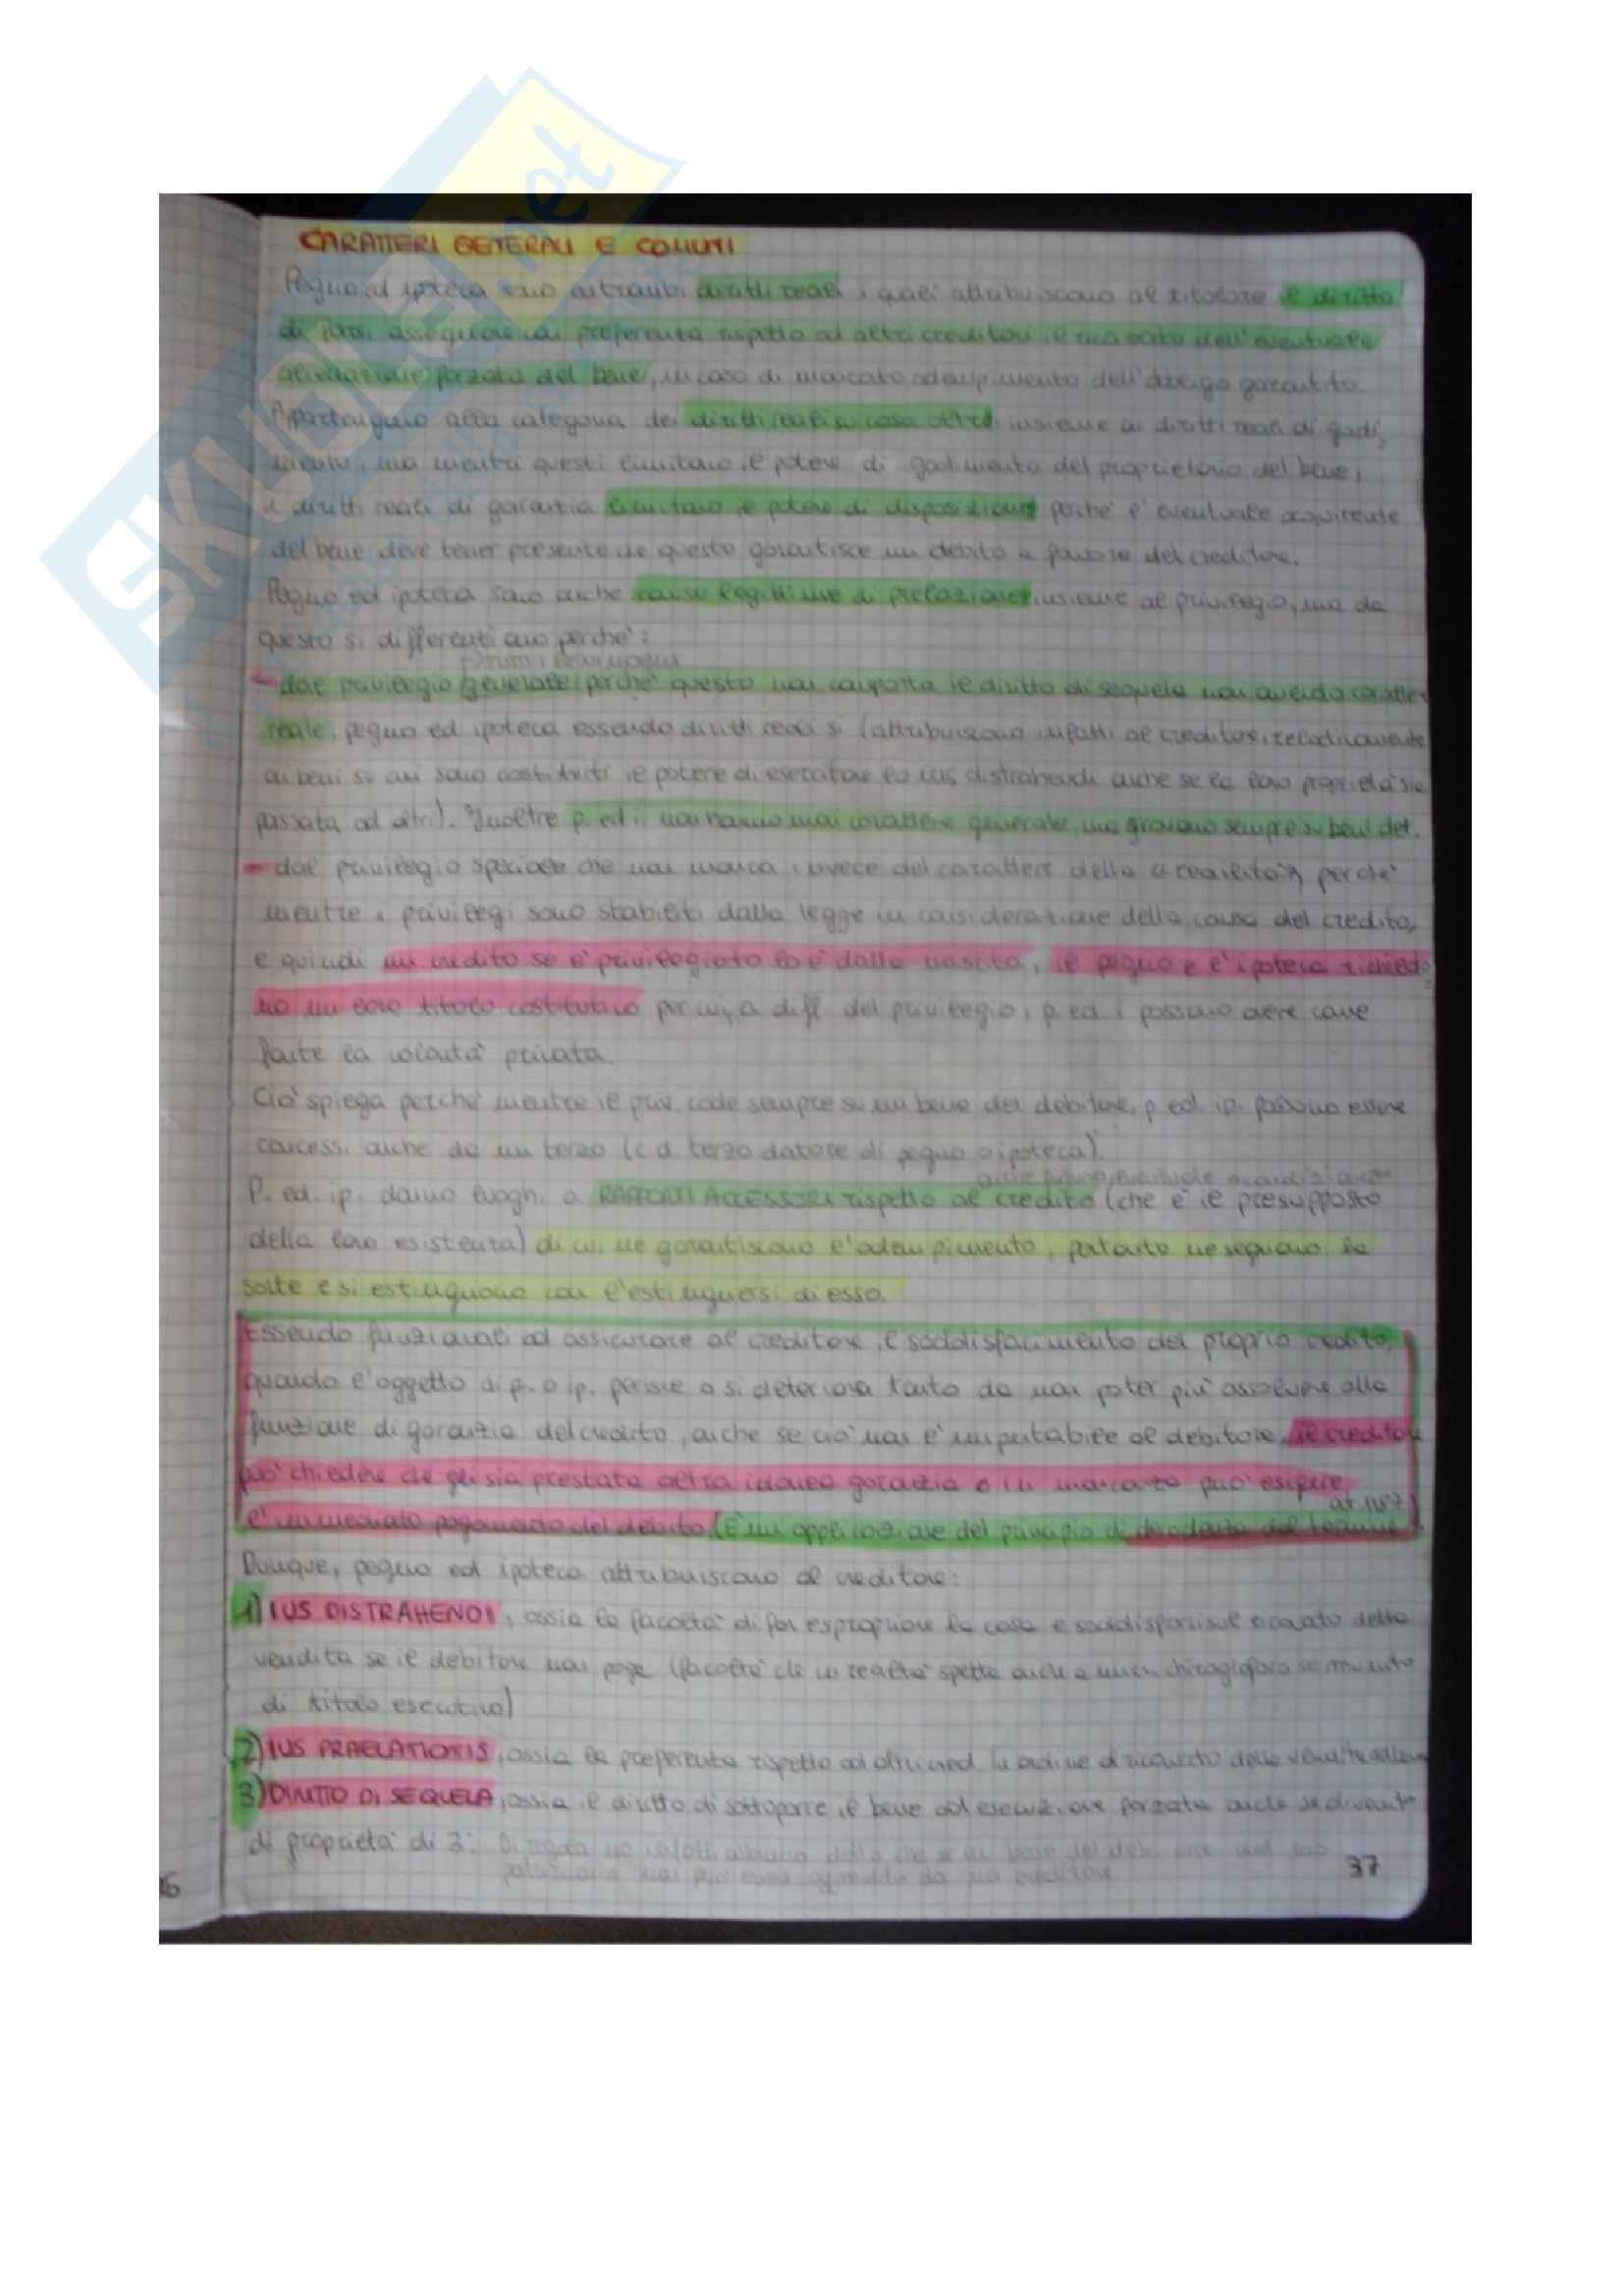 SKUOLA.net
CARATTERI GENERALI E COMUNI
Pegno ed ipoteca sono entrambi diritti reali i quali attribuiscono al titolare il diritto
di farsi assegnare con preferenza rispetto ad altri creditori il ricavato dell'eventuale
alienazione forzata del bene, in caso di mancato adempimento dell'obbligo garantito.
Appartengono alla categoria dei diritti reali su cosa altrui insieme ai diritti reali di godi,
mento, ma mentre questi limitano il potere di godimento del proprietario del bene,
i diritti reali di garanzia limitano il potere di disposizione perché l'eventuale acquirente
del bene deve tener presente che questo garantisce un debito a favore del creditore.
Pegno ed ipoteca sono anche cause legittime di prelazione insieme al privilegio, ma da
questo si differenziano perché:
- dal privilegio generale perché questo non comporta il diritto di sequela non avendo carattere
reale, pegno ed ipoteca essendo diritti reali si (attribuiscono infatti al creditore, relativamente
ai beni su cui sono costituiti il potere di esercitare lo ius distrahendi anche se la loro proprietà sia
passata ad altri). Inoltre p. ed i. non hanno mai carattere generale, ma gravano sempre su beni det.
- dal privilegio speciale che non manca invece del carattere della "realità", perché
mentre i privilegi sono stabiliti dalla legge in considerazione della causa del credito,
e quindi un credito se è privilegiato lo è dalla nascita, il pegno e l'ipoteca richiedo
no un loro titolo costitutivo per cui, a diff. del privilegio, p. ed i. possono avere come
fonte la volontà privata.
Ciò spiega perché mentre il priv. cade sempre su un bene del debitore, p. ed. ip. possono essere
concessi anche da un terzo (c.d. terzo datore di pegno o ipoteca).
anche futuro, eventuale o condizionato
P. ed. ip. danno luogo a RAPPORTI ACCESSORI rispetto al credito (che è il presupposto
della loro esistenza) di cui ne garantiscono l'adempimento, pertanto ne seguono la
sorte e si estinguono con l'estinguersi di esso.
Essendo funzionali ad assicurare al creditore il soddisfacimento del proprio credito,
quando l'oggetto di p. o ip. perisce o si deteriora tanto da non poter più assolvere alla
funzione di garanzia del credito, anche se ciò non è imputabile al debitore, il creditore
può chiedere che gli sia prestata altra idonea garanzia o in mancanza può esigere
l'immediato pagamento del debito (È un'applicazione del principio di decadenza dal termine
Dunque, pegno ed ipoteca attribuiscono al creditore:
1) IUS DISTRAHENDI, ossia la facoltà di far espropriare la cosa e soddisfarsi sul ricavato della
vendita se il debitore non paga (facoltà che in realtà spetta anche a un chirografario se munito
di titolo esecutivo)
2) IUS PRAELATIONIS, ossia la preferenza rispetto ad altri cred. in ordine al ricavato della vendita
3) DIRITTO DI SEQUELA, ossia il diritto di sottoporre il bene ad esecuzione forzata anche se divenuto
di proprietà di 3:
37